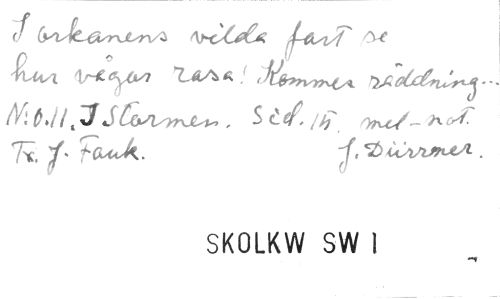 I orkanens vilda fart se
hur vågor rasa! Kommer räddning...
N:o.11. I Stormen. Sid. 15. mel-not.
Tr. J. Fauk. J. Dürrner.
SKOLKW SW 1